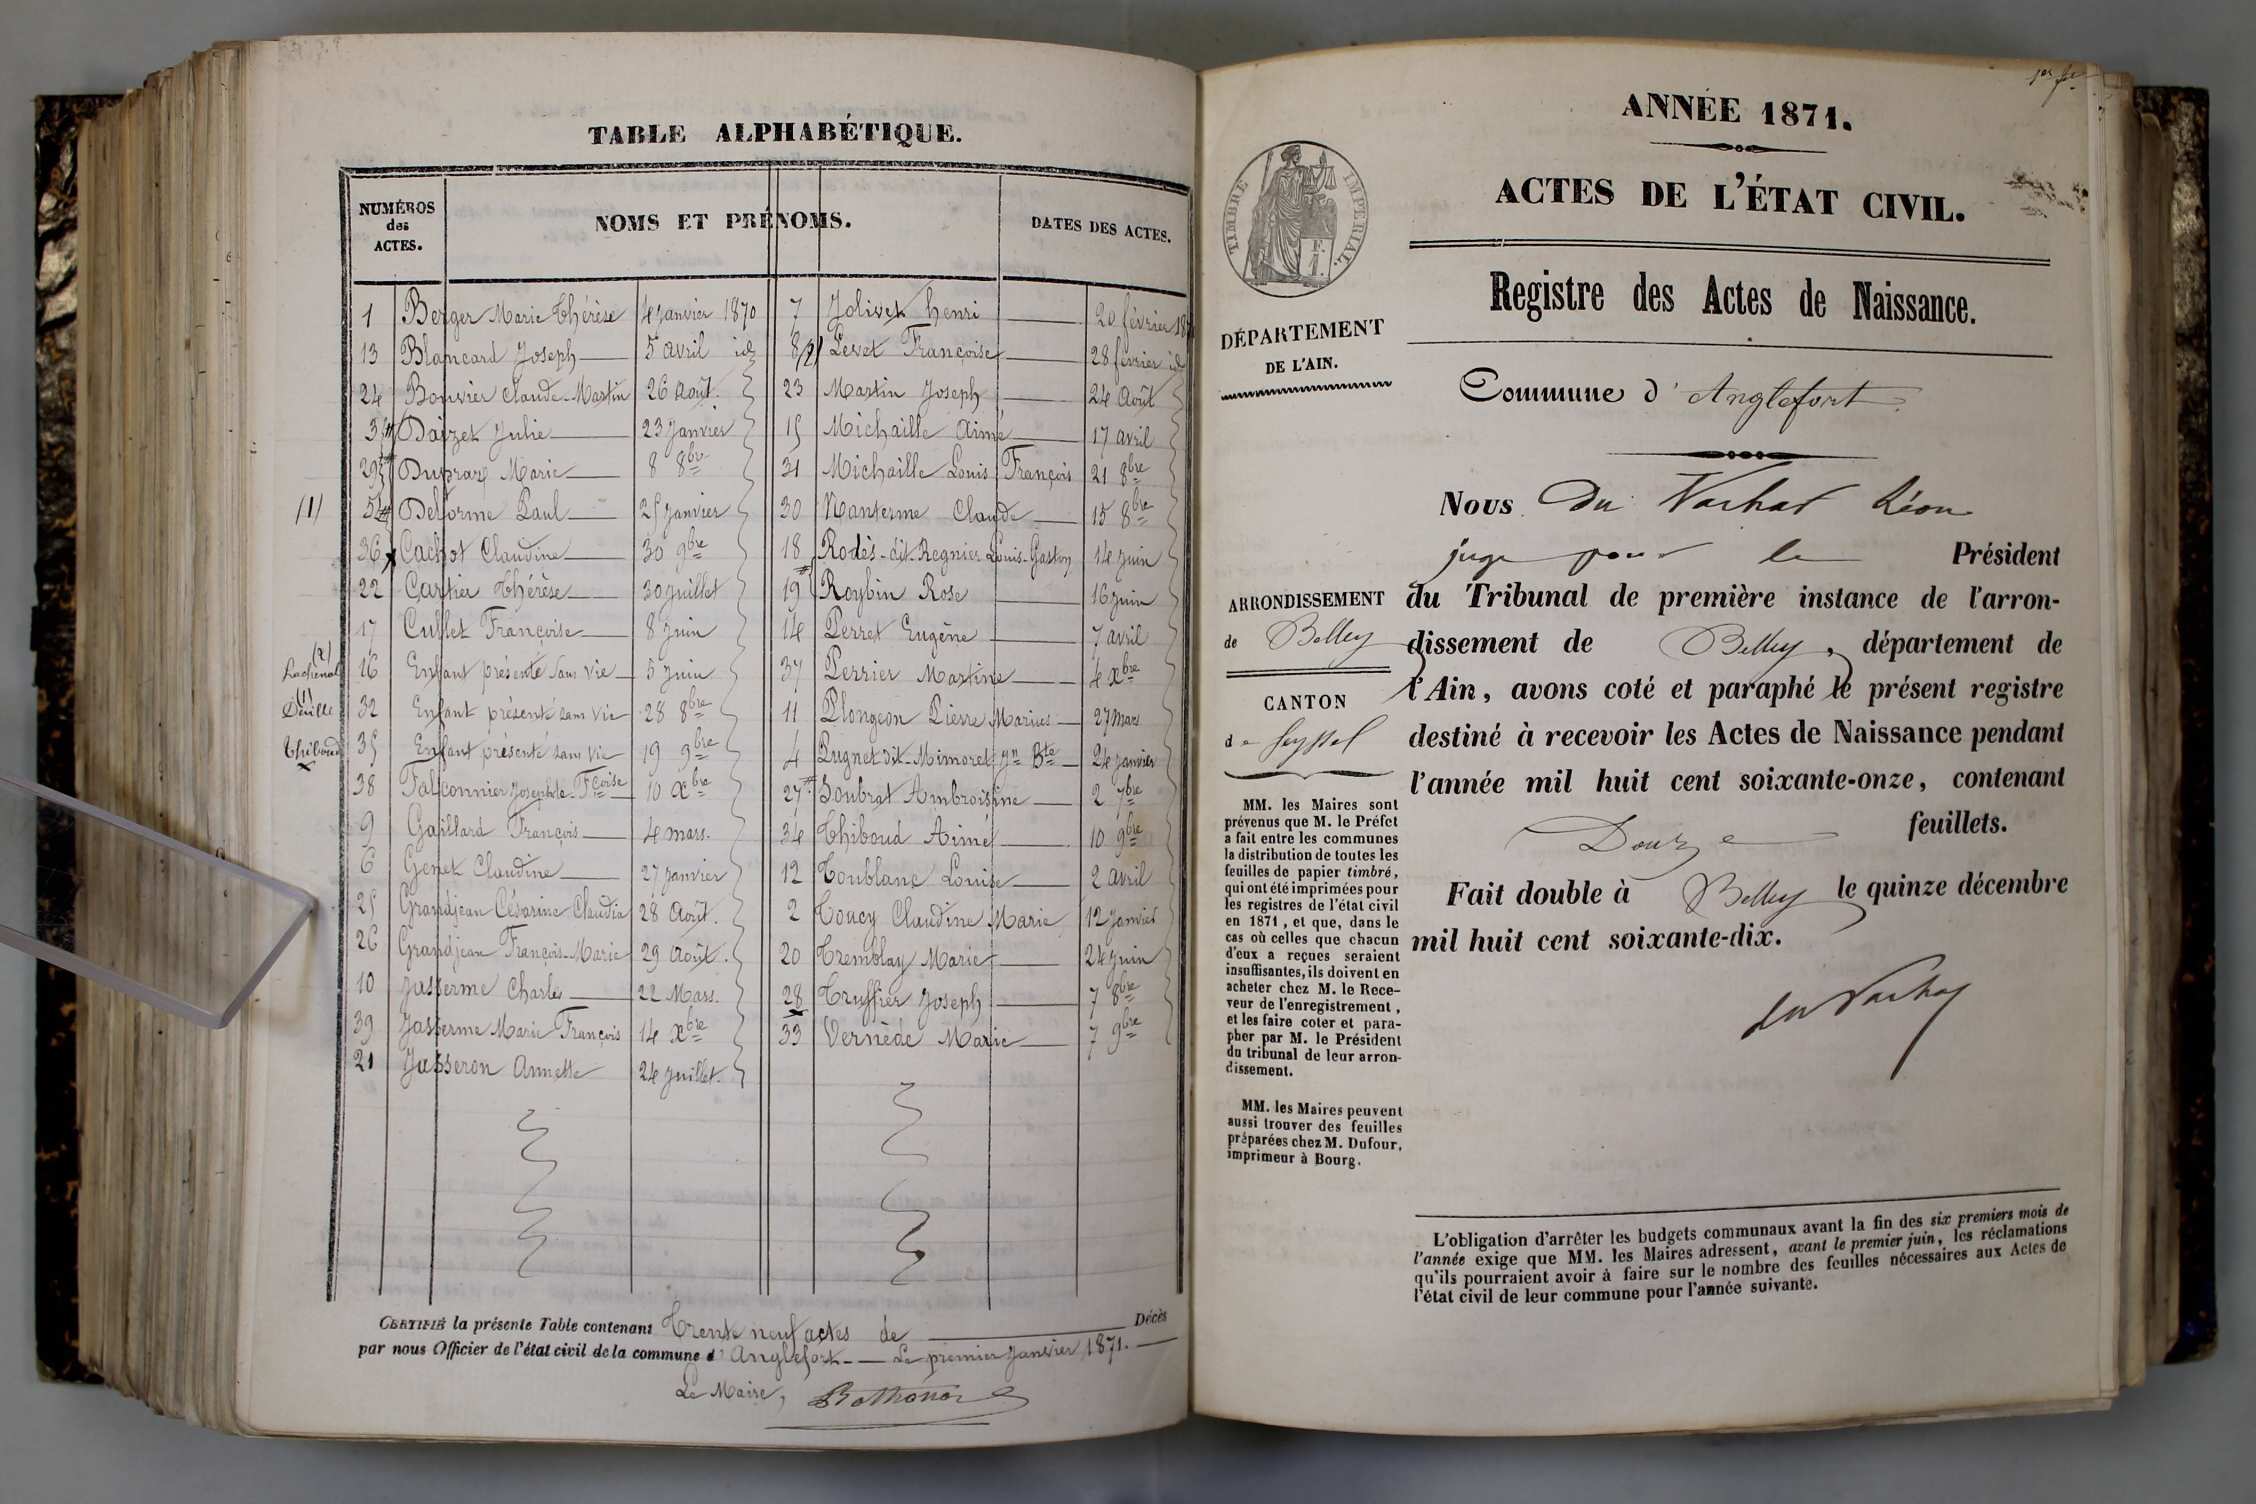 TABLE ALPHABÉTIQUE.
NUMÉROS
des
ACTES.
NOMS ET PRÉNOMS.
DATES DES ACTES.
1 Berger Marie Thérèse 4 Janvier 1870
13 Blancard Joseph 5 avril id
24 Bouvier Claude-Martin 26 Août.
3 Daizet Julie 23 Janvier
29 Dupraz Marie 8 8bre
(1) 5 Delorme Paul 25 Janvier
36 Cachot Claudine 30 9bre
22 Cartier Thérèse 30 Juillet
17 Cullet Françoise 8 Juin
(2)
Lachenal 16 Enfant présenté sans vie 5 Juin
(1)
32 Enfant présenté sans vie 28 8bre
Thiboud 35 Enfant présenté sans vie 19 9bre
38 Falconnier Josephte-Fcoise 10 Xbre
9 Gaillard François 4 mars.
6 Genet Claudine 27 Janvier
25 Grandjean Césarine Claudia 28 Août.
26 Grandjean François-Marie 29 Août.
10 Jasserme Charles 22 Mars.
39 Jasserme Marie François 14 Xbre
21 Jasseron Annette 24 Juillet.
7 Jolivet Henri 20 février 18
8 (2) Levet Françoise 28 février id
23 Martin Joseph 24 Août
15 Michaille Aimé 17 avril
31 Michaille Louis François 21 8bre
30 Nanterme Claude 15 8bre
18 Rodès-dit-Regnier Louis-Gaston 14 Juin
19 Roybin Rose 16 Juin
14 Perret Eugène 7 avril
37 Perrier Martine 4 Xbre
11 Plongeon Pierre Marius 27 Mars
4 Pugnet dit-Mimoret Jn Bte 24 Janvier
27 Soubrat Ambroisine 2 7bre
34 Thiboud Aimé 10 9bre
12 Toublanc Louise 2 avril
2 Toucy Claudine Marie 12 Janvier
20 Tremblay Marie 24 Juin
28 Truffier Joseph 7 8bre
33 Vernède Marie 7 9bre
CERTIFIÉ la présente Table contenant Trente neuf actes de Décès
par nous Officier de l'état civil de la commune d'Anglefort Le premier Janvier 1871.
Le Maire,
1er
ANNÉE 1871.
ACTES DE L'ÉTAT CIVIL.
Registre des Actes de Naissance.
TIMBRE IMPÉRIAL.
DÉPARTEMENT
DE L'AIN.
Commune d'Anglefort
ARRONDISSEMENT
de Belley
CANTON
de Seyssel
MM. les Maires sont
prévenus que M. le Préfet
a fait entre les communes
la distribution de toutes les
feuilles de papier timbré,
qui ont été imprimées pour
les registres de l'état civil
en 1871, et que, dans le
cas où celles que chacun
d'eux a reçues seraient
insuffisantes, ils doivent en
acheter chez M. le Rece-
veur de l'enregistrement,
et les faire coter et para-
pher par M. le Président
du tribunal de leur arron-
dissement.
MM. les Maires peuvent
aussi trouver des feuilles
préparées chez M. Dufour,
imprimeur à Bourg.
Nous Du Vachat Léon
juge pour le Président
du Tribunal de première instance de l'arron-
dissement de Belley, département de
l'Ain, avons coté et paraphé le présent registre
destiné à recevoir les Actes de Naissance pendant
l'année mil huit cent soixante-onze, contenant
Douze feuillets.
Fait double à Belley le quinze décembre
mil huit cent soixante-dix.
du Vachat
L'obligation d'arrêter les budgets communaux avant la fin des six premiers mois de
l'année exige que MM. les Maires adressent, avant le premier juin, les réclamations
qu'ils pourraient avoir à faire sur le nombre des feuilles nécessaires aux Actes de
l'état civil de leur commune pour l'année suivante.